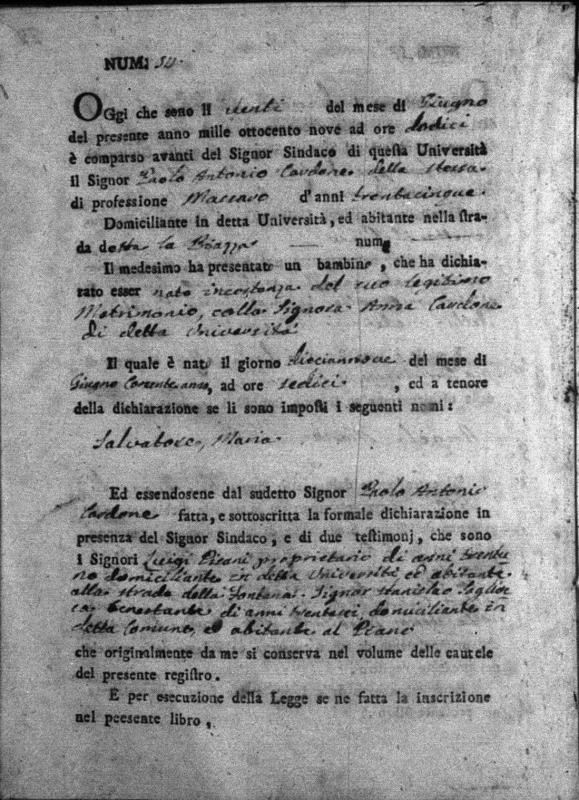 NUM: 54.
OGgi che sono li venti del mese di Giugno
del presente anno mille ottocento nove ad ore dodici
è comparso avanti del Signor Sindaco di questa Università
il Signor Paolo Antonio Cardone della stessa
di professione Massaro d'anni trentacinque.
Domiciliante in detta Università, ed abitante nella stra-
da detta la Piazza — num.
Il medesimo ha presentato un bambino, che ha dichia-
rato esser nato incostanza del suo legitimo
Matrimonio, colla Signora Anna Cardone
di detta Università
Il quale è nato il giorno diecinnove del mese di
Giugno Corente anno, ad ore sedici, ed a tenore
della dichiarazione se li sono imposti i seguenti nomi:
Salvatore, Maria.
Ed essendosene dal sudetto Signor Paolo Antonio
Cardone fatta, e sottoscritta la formale dichiarazione in
presenza del Signor Sindaco, e di due testimonj, che sono
i Signori Luigi Pisani proprietario di anni trentu
no domiciliante in detta Università, ed abitante
alla strada della Fontana. Signor Stanislao
di anni ventisei, domiciliante in
detta Comune, ed abitante al Piano
che originalmente da me si conserva nel volume delle cautele
del presente registro.
E per esecuzione della Legge se ne fatta la inscrizione
nel peesente libro,